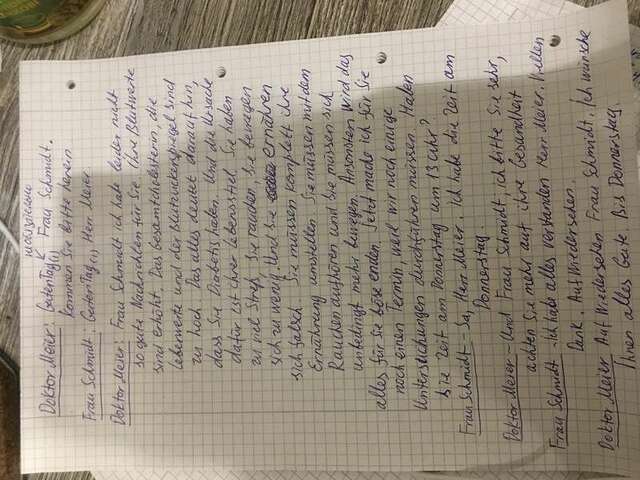 необязательно
Doktor Meier: Guten Tag(,) Frau Schmidt.
Kommen Sie bitte herein
Frau Schmidt: Guten Tag(,) Herr Meier.
Doktor Meier: Frau Schmidt ich habe leider nicht
so gute Nachrichten für Sie. Ihre Blutwerte
sind erhöht. Das Gesamtcholesterin, die
Leberwerte und der Blutzuckerspiegel sind
zu hoch. Das alles deutet darauf hin,
dass Sie Diabetis haben. Und die Ursache
dafür ist ihrer Lebensstiel. Sie haben
zu viel Streß, Sie rauchen, Sie bewegen
sich zu wenig. Und Sie ernähren
sich falsch. Sie müssen komplett ihre
Ernährung umstellen. Sie müssen mit dem
Rauchen aufhören und Sie müssen sich
unbedingt mehr bewegen. Ansonsten wird das
alles für Sie böse enden. Jetzt mache ich für Sie
noch einen Termin, weil wir noch einige
Untersuchungen durchführen müssen. Haben
Sie Zeit am Donnerstag um 13 Uhr?
Frau Schmidt - Ja, Herr Meier. Ich habe die Zeit am
Donnerstag.
Doktor Meier - Und Frau Schmidt, ich bitte Sie sehr,
achten Sie mehr auf ihre Gesundheit
Frau Schmidt - Ich habe alles verstanden Herr Meier. Viellen
Dank. Auf Wiedersehen.
Doktor Meier Auf Wiedersehen Frau Schmidt. Ich wünsche
Ihnen alles Gute. Bis Donnerstag.